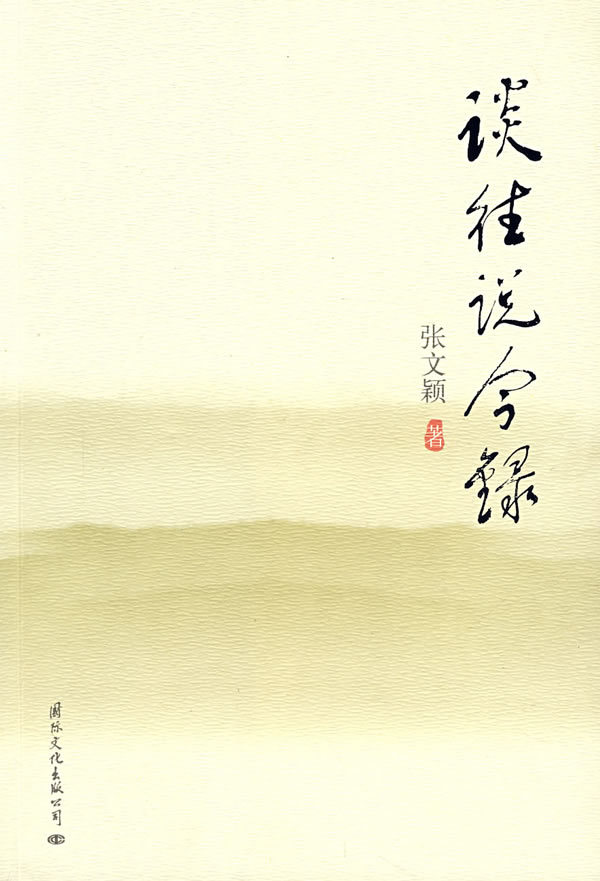 谈往说今录
张文颖
著
国际文化出版公司